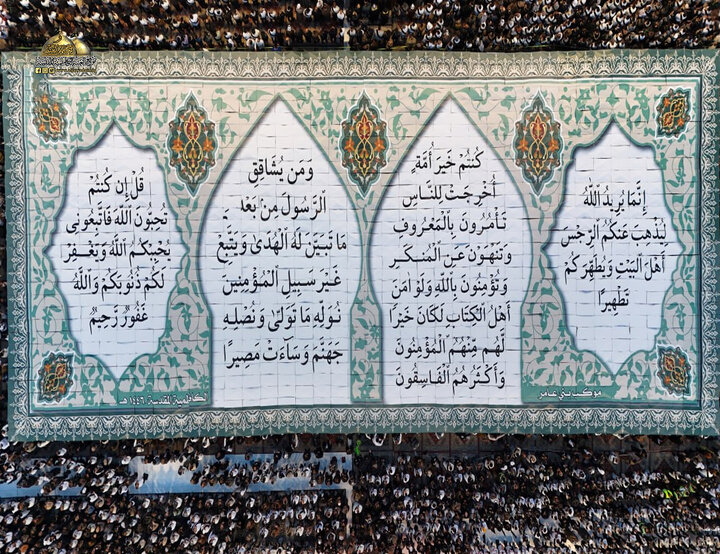 إِنَّمَا يُرِيدُ اللَّهُ
لِيُذْهِبَ عَنكُمُ الرِّجْسَ
أَهْلَ الْبَيْتِ وَيُطَهِّرَكُمْ
تَطْهِيرًا
كُنتُمْ خَيْرَ أُمَّةٍ
أُخْرِجَتْ لِلنَّاسِ
تَأْمُرُونَ بِالْمَعْرُوفِ
وَتَنْهَوْنَ عَنِ الْمُنكَرِ
وَتُؤْمِنُونَ بِاللَّهِ وَلَوْ آمَنَ
أَهْلُ الْكِتَابِ لَكَانَ خَيْرًا
لَّهُم مِّنْهُمُ الْمُؤْمِنُونَ
وَأَكْثَرُهُمُ الْفَاسِقُونَ
وَمَن يُشَاقِقِ
الرَّسُولَ مِنْ بَعْدِ
مَا تَبَيَّنَ لَهُ الْهُدَىٰ وَيَتَّبِعْ
غَيْرَ سَبِيلِ الْمُؤْمِنِينَ
نُوَلِّهِ مَا تَوَلَّىٰ وَنُصْلِهِ
جَهَنَّمَ وَسَاءَتْ مَصِيرًا
قُلْ إِن كُنتُمْ
تُحِبُّونَ اللَّهَ فَاتَّبِعُونِي
يُحْبِبْكُمُ اللَّهُ وَيَغْفِرْ
لَكُمْ ذُنُوبَكُمْ وَاللَّهُ
غَفُورٌ رَّحِيمٌ
موكب بني عامر
الكاظمية المقدسة ١٤٤٦هـ